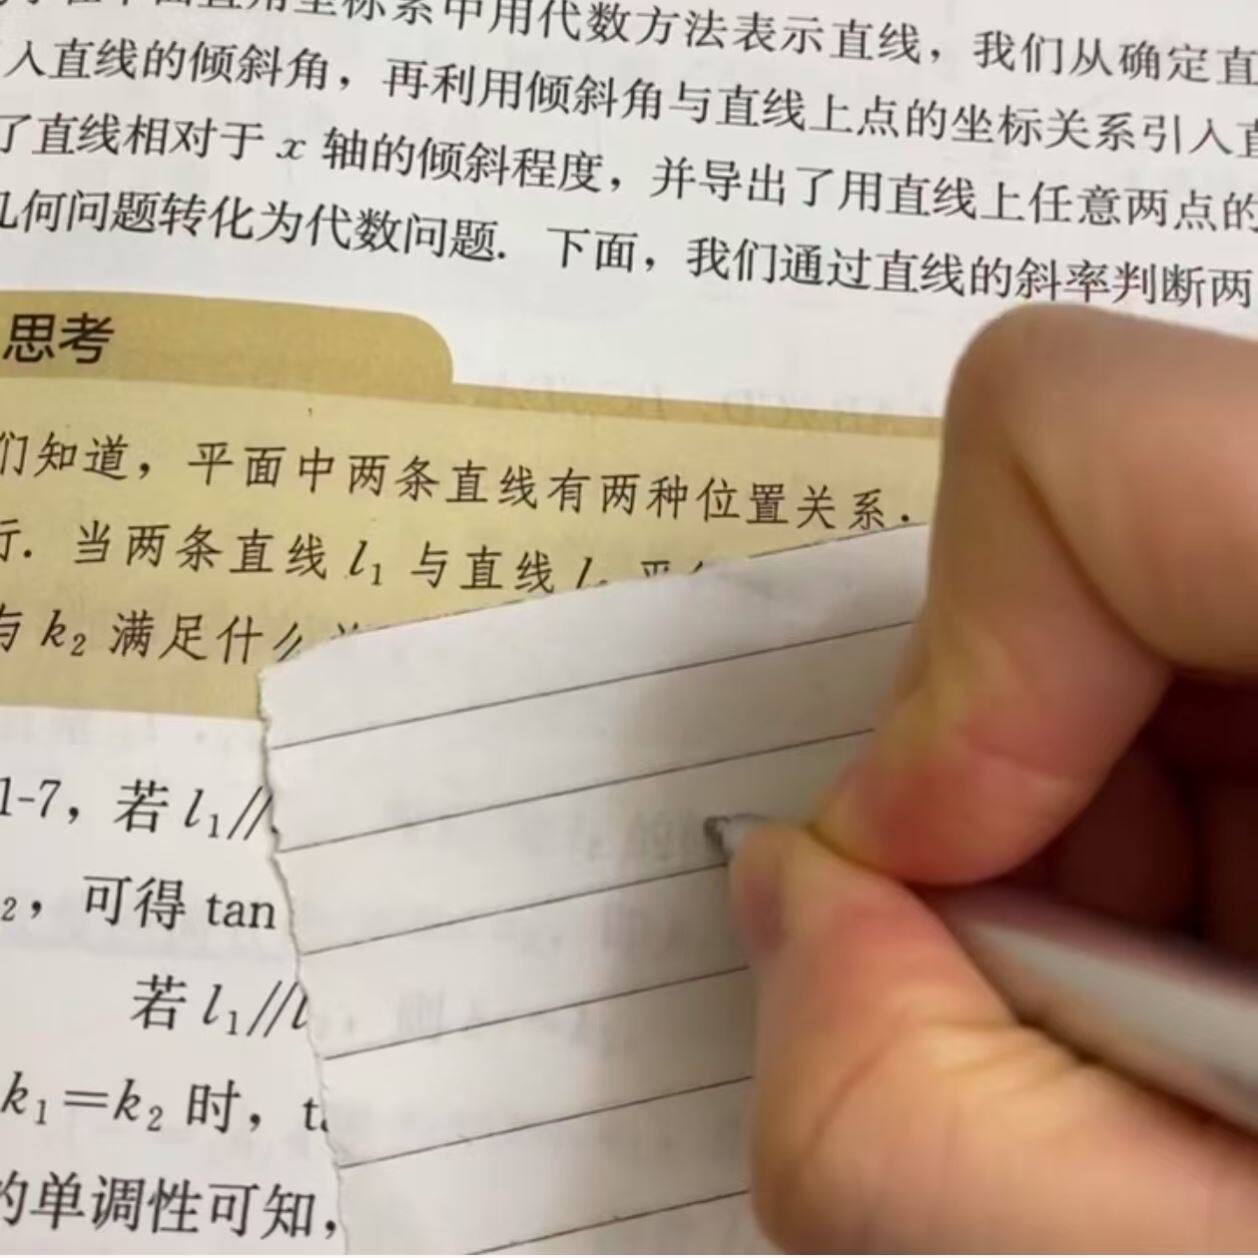 在平面直角坐标系中用代数方法表示直线，我们从确定直
入直线的倾斜角，再利用倾斜角与直线上点的坐标关系引入直
了直线相对于 x 轴的倾斜程度，并导出了用直线上任意两点的
几何问题转化为代数问题. 下面，我们通过直线的斜率判断两
思考
们知道，平面中两条直线有两种位置关系.
行. 当两条直线 l₁ 与直线 l
与 k₂ 满足什么
1-7，若 l₁//
₂，可得 tan
若 l₁//l
k₁=k₂ 时，t
的单调性可知，